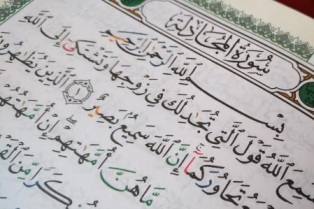 سُورَةُ الْمُجَادَلَةِ
بِسْمِ اللَّهِ الرَّحْمَٰنِ الرَّحِيمِ
سَمِعَ اللَّهُ قَوْلَ الَّتِي تُجَادِلُكَ فِي زَوْجِهَا وَتَشْتَكِي إِلَى اللَّهِ
تَحَاوُرَكُمَا إِنَّ اللَّهَ سَمِيعٌ بَصِيرٌ ١ الَّذِينَ
مَا هُنَّ أُمَّهَاتِهِمْ إِنْ أُمَّهَاتُهُمْ
مِنَ